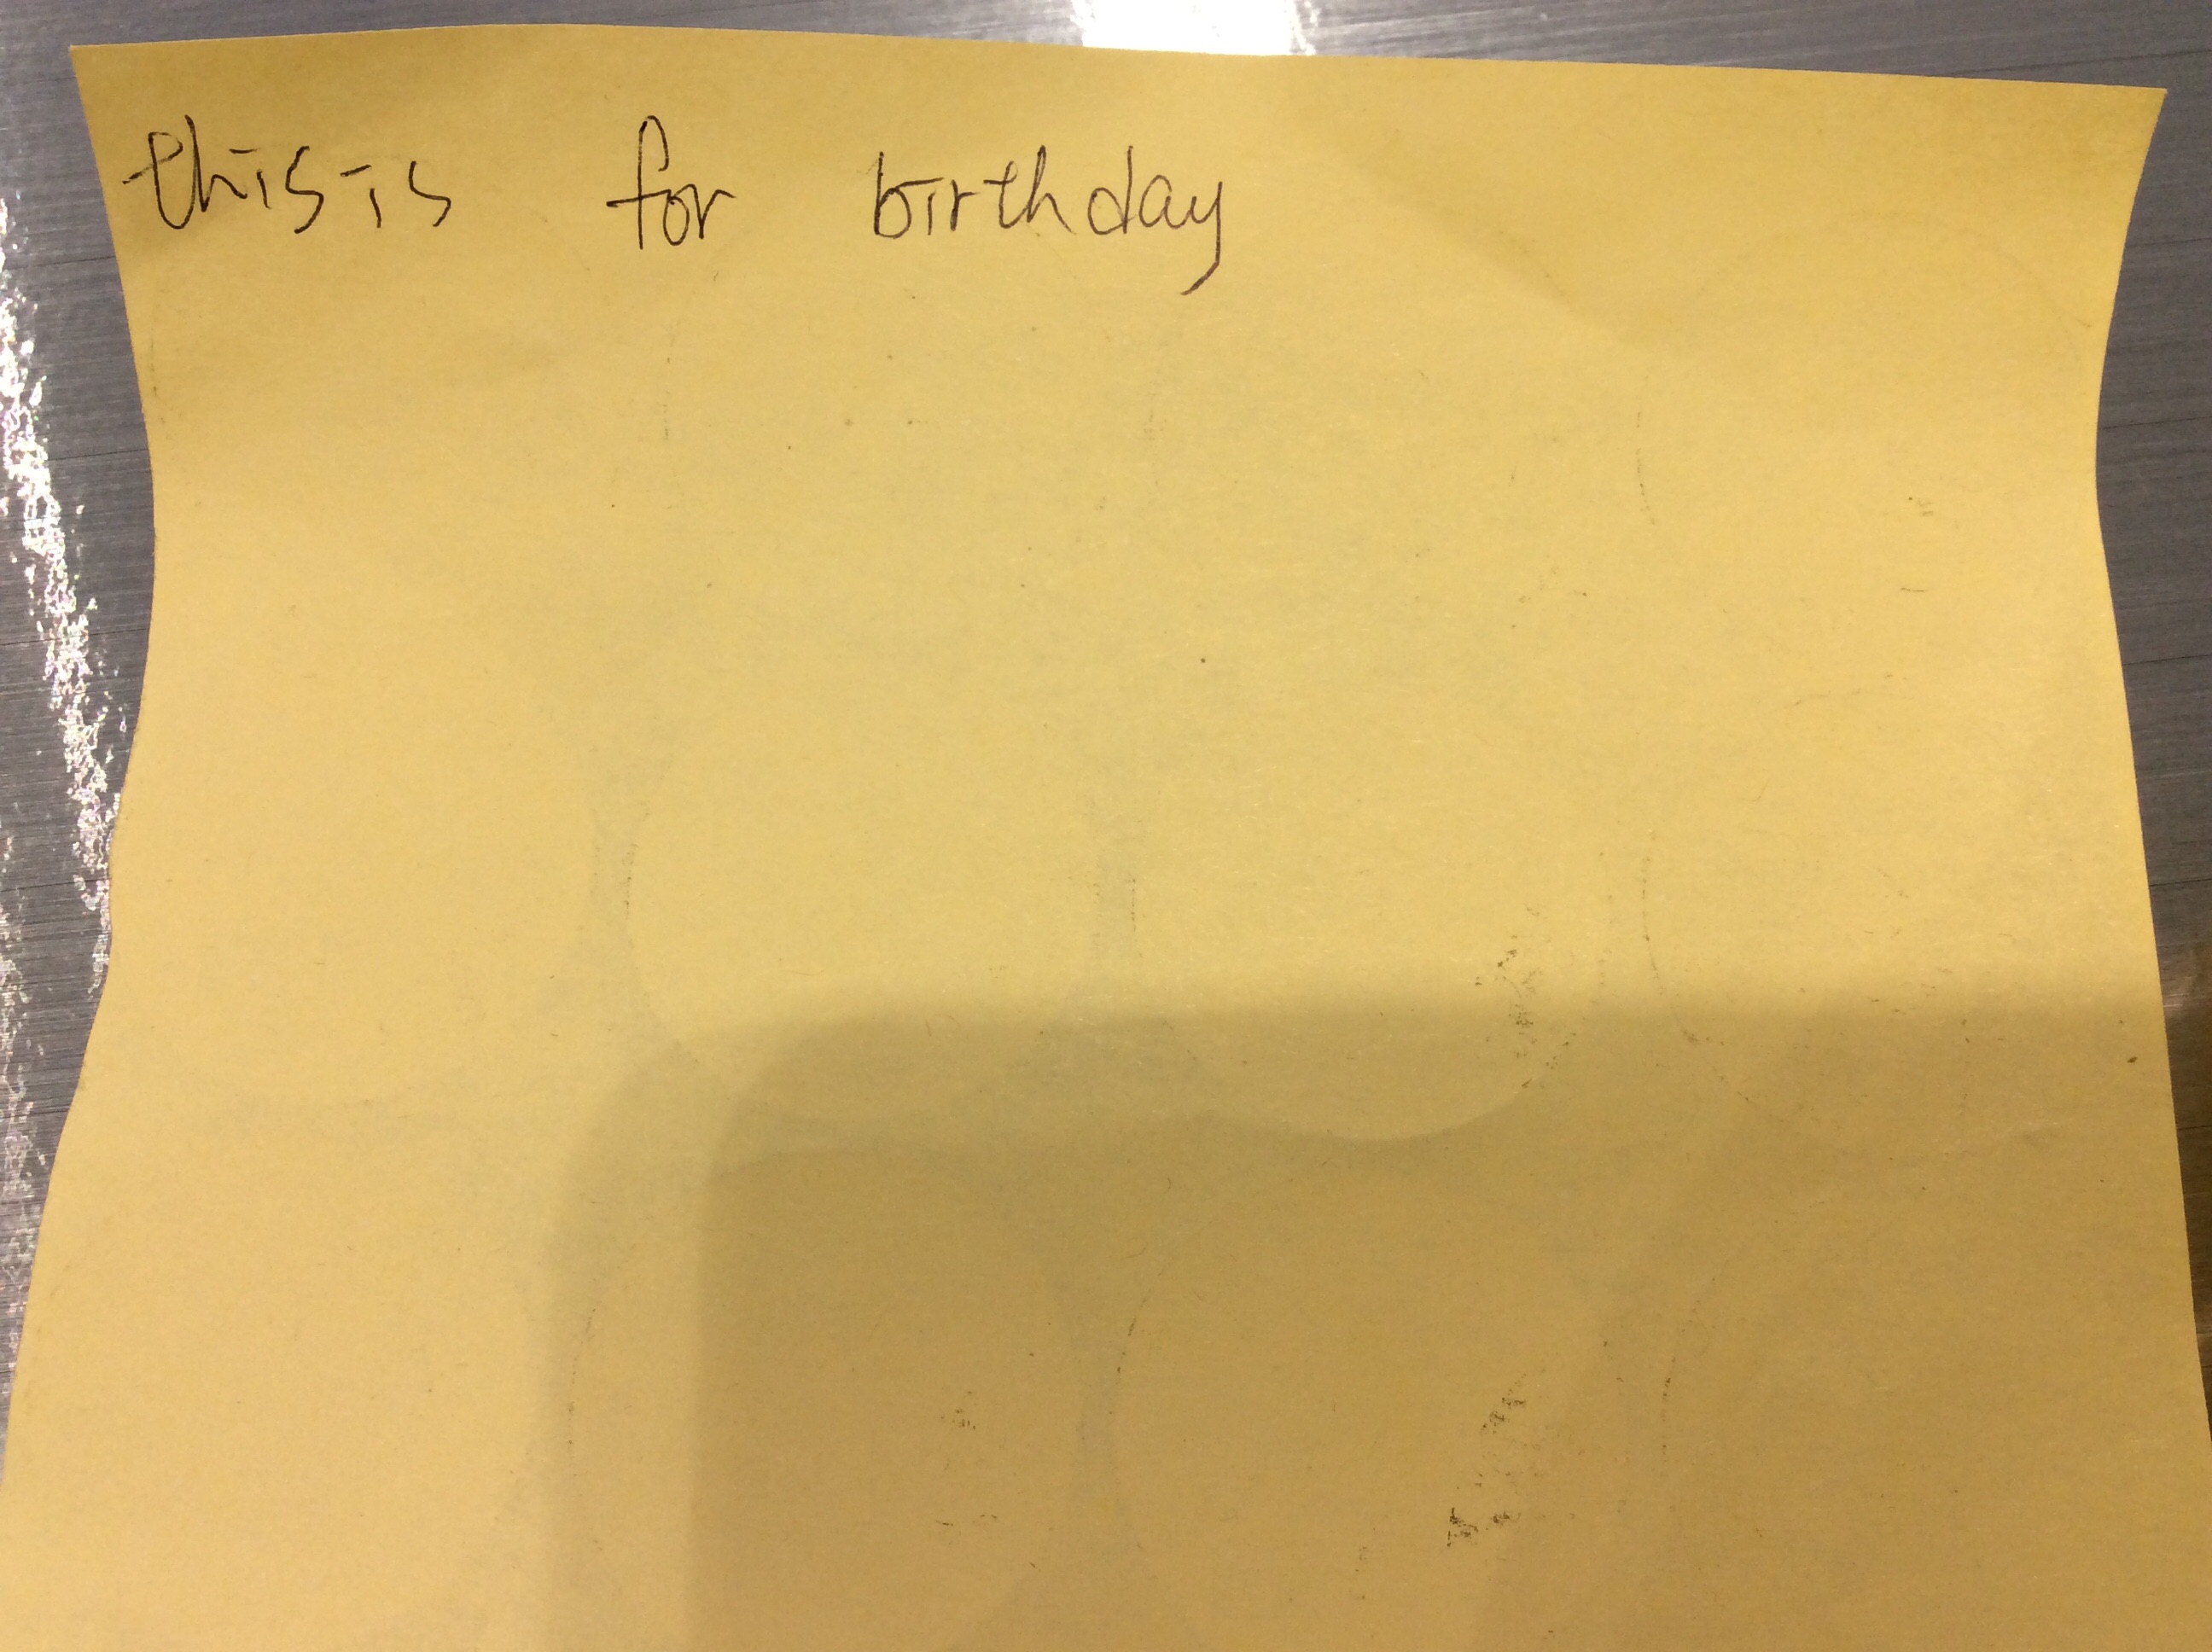 this is for birthday